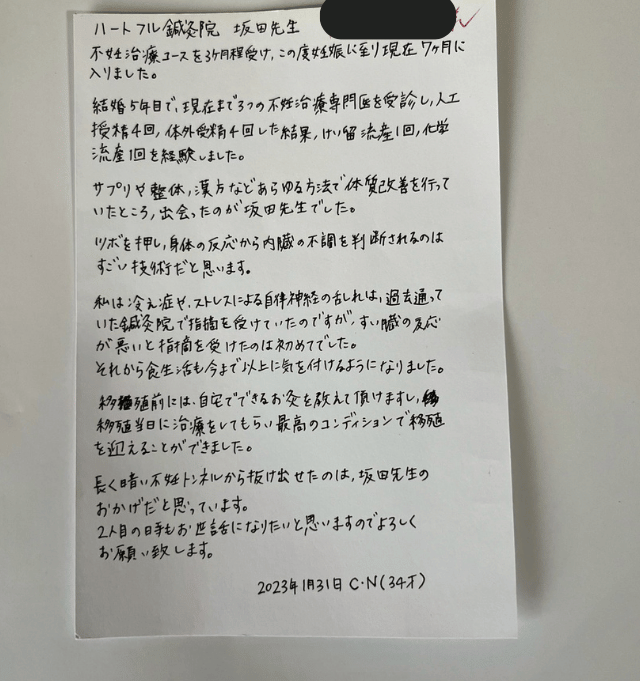 ハートフル鍼灸院 坂田先生
不妊治療コースを3ヶ月程受け、この度妊娠に至り現在7ヶ月に
入りました。
結婚5年目で、現在まで3つの不妊治療専門医を受診し、人工
授精4回、体外受精4回した結果、けい留流産1回、化学
流産1回を経験しました。
サプリや整体、漢方などあらゆる方法で体質改善を行って
いたところ、出会ったのが坂田先生でした。
ツボを押し、身体の反応から内臓の不調を判断されるのは
すごい技術だと思います。
私は冷え症や、ストレスによる自律神経の乱れは、過去通って
いた鍼灸院で指摘を受けていたのですが、すい臓の反応
が悪いと指摘を受けたのは初めてでした。
それから食生活も今まで以上に気を付けるようになりました。
移植前には、自宅でできるお灸を教えて頂けますし、
移植当日に治療をしてもらい最高のコンディションで移植
を迎えることができました。
長く暗い不妊トンネルから抜け出せたのは、坂田先生の
おかげだと思っています。
2人目の時もお世話になりたいと思いますのでよろしく
お願い致します。
2023年1月31日 C・N(34才)